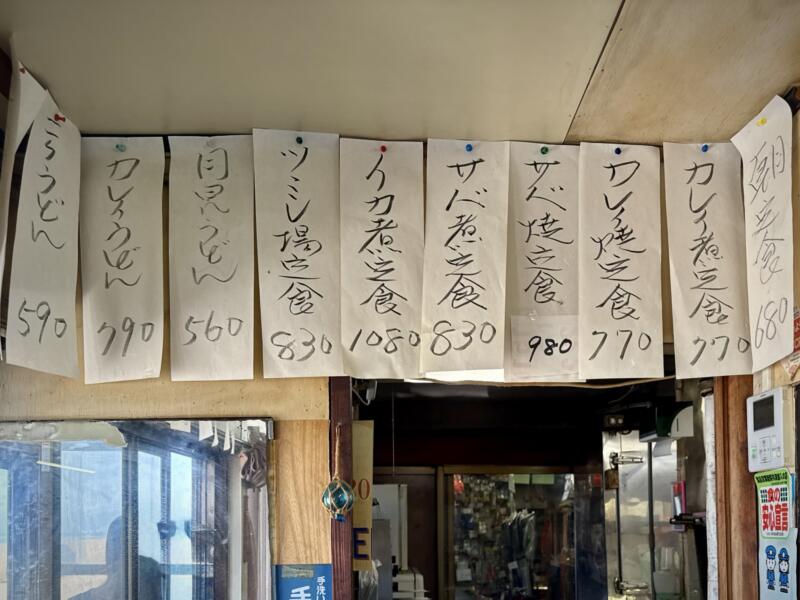 朝定食
680
カレイ煮定食
770
カレイ焼定食
770
サバ焼定食
980
サバ煮定食
830
イカ煮定食
1080
ツミレ場定食
830
月見うどん
560
カレイうどん
790
うどん
590
食の
安心宣言
手洗い
手